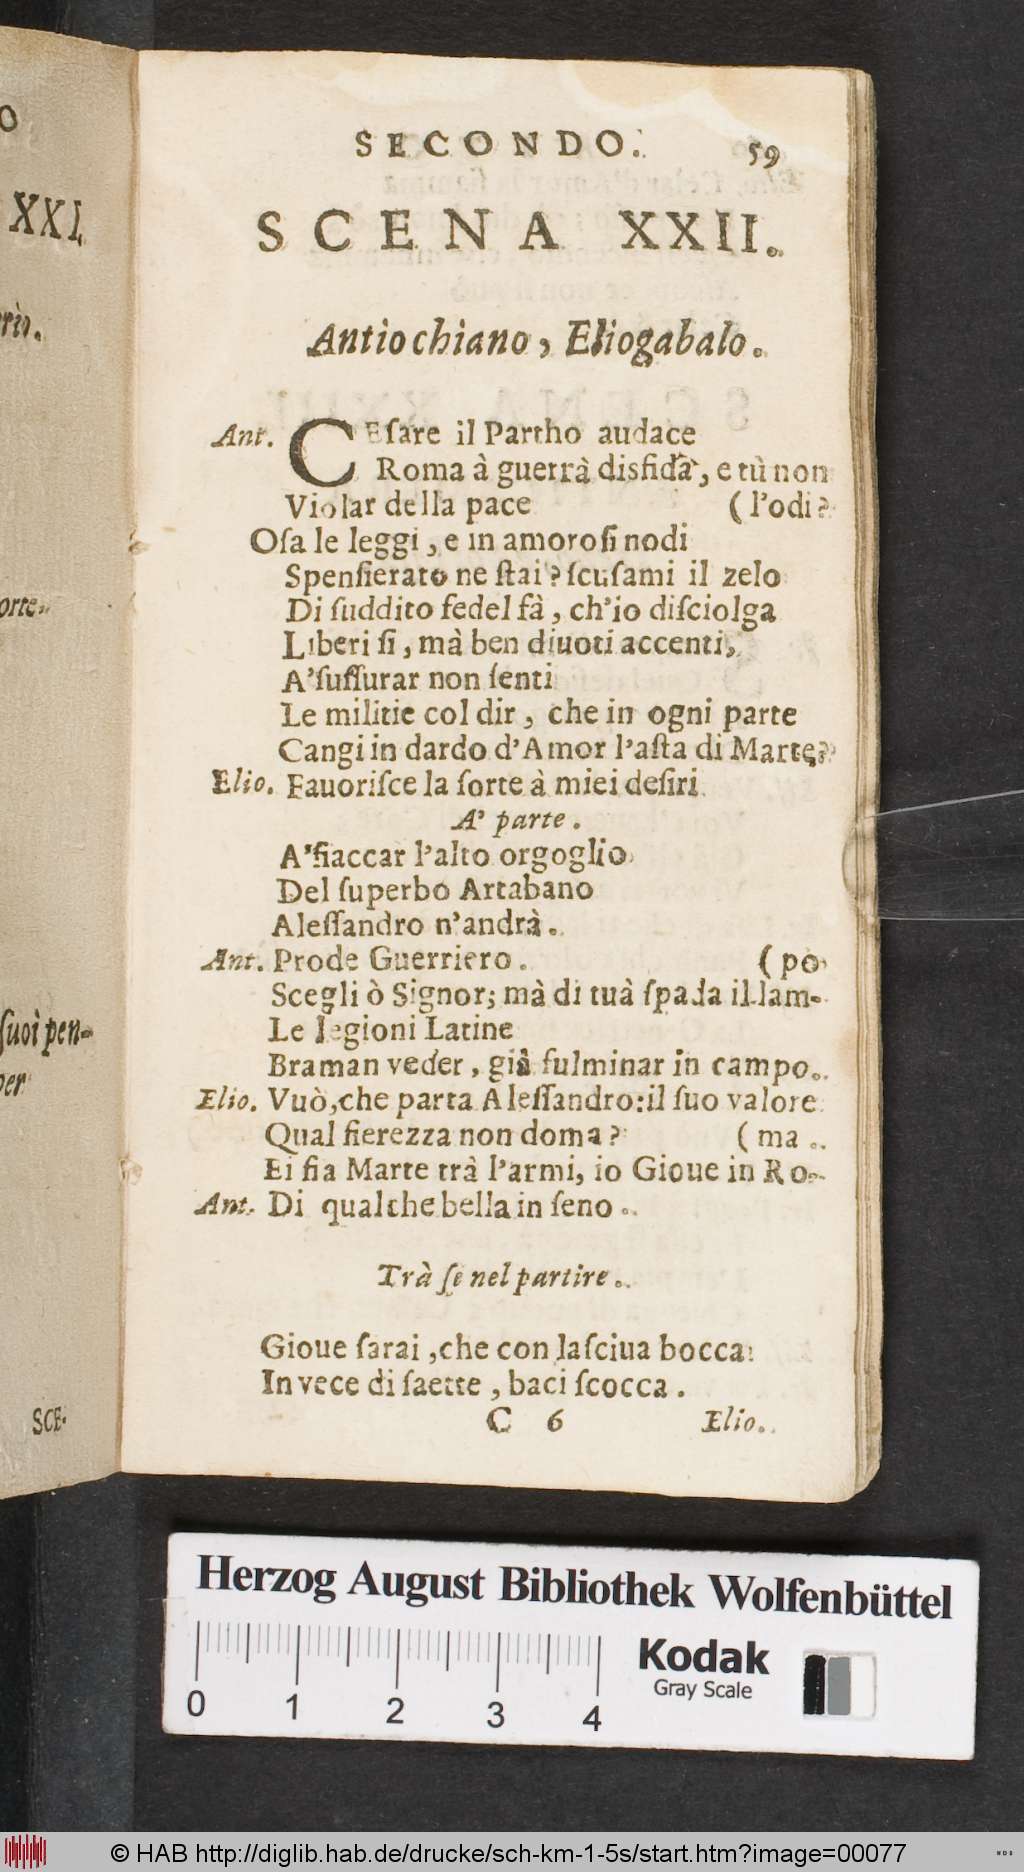 O
XXI.
rio.
orte.
suoi pen-
per
SCE-
SECONDO. 59
SCENA XXII.
Antiochiano, Eliogabalo.
Ant. CEſare il Partho audace
Roma à guerrà disfida, e tù non
Violar della pace (l'odi?
Oſa le leggi, e in amoroſi nodi
Spenſierato ne ſtai? ſcuſami il zelo
Di ſuddito fedel fà, ch'io diſciolga
Liberi ſi, mà ben diuoti accenti,
A'ſuſſurar non ſenti
Le militie col dir, che in ogni parte
Cangi in dardo d'Amor l'aſta di Marte?
Elio. Fauoriſce la ſorte à miei deſiri
A' parte.
A'fiaccar l'alto orgoglio
Del ſuperbo Artabano
Aleſſandro n'andrà.
Ant. Prode Guerriero. (po
Scegli ò Signor; mà di tuà ſpada il lam-
Le legioni Latine
Braman veder, già fulminar in campo.
Elio. Vuò, che parta Aleſſandro: il ſuo valore
Qual fierezza non doma? (ma.
Ei ſia Marte trà l'armi, io Gioue in Ro-
Ant. Di qualche bella in ſeno.
Trà ſe nel partire.
Gioue ſarai, che con laſciua bocca
In vece di ſaette, baci ſcocca.
C 6 Elio.
Herzog August Bibliothek Wolfenbüttel
0 1 2 3 4
Kodak
Gray Scale
© HAB http://diglib.hab.de/drucke/sch-km-1-5s/start.htm?image=00077